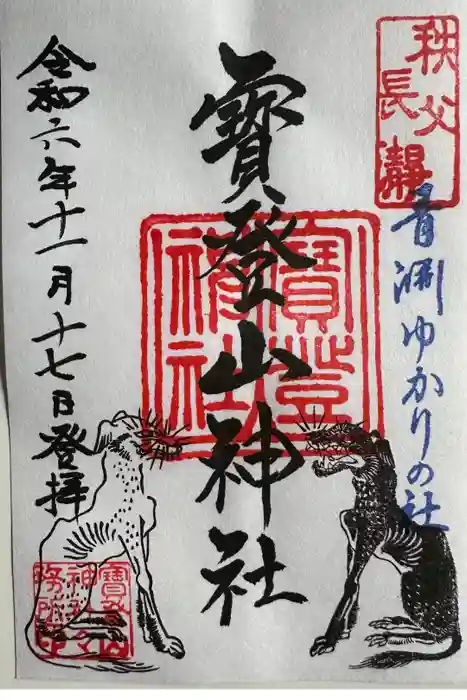 秩父
長瀞
青淵ゆかりの社
寳登山神社
寳登山
神社
令和六年十一月十七日登拝
寳登山
神社々
務所印